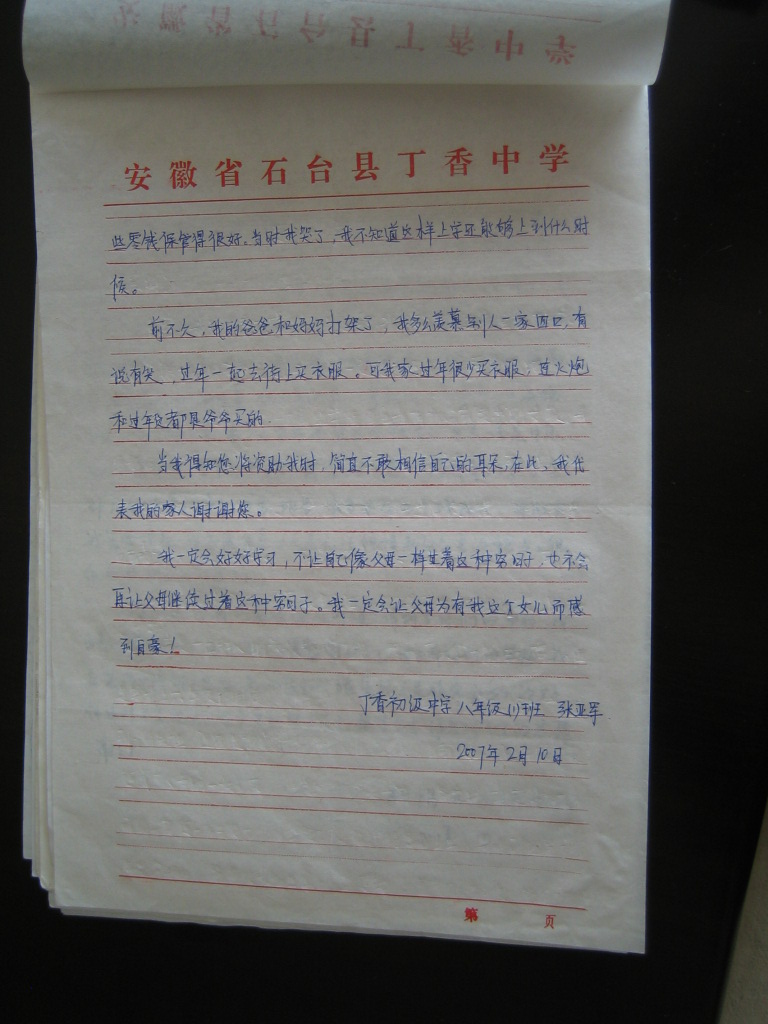 安徽省石台县丁香中学
些零钱保管得很好。当时我哭了,我不知道这样上学还能够上到什么时
候。
前不久,我的爸爸和妈妈打架了,我多么羡慕别人一家四口,有
说有笑,过年一起去街上买衣服。可我家过年很少买衣服,连火炮
和过年货都是爷爷买的.
当我得知您将资助我时,简直不敢相信自己的耳朵,在此,我代
表我的家人谢谢您。
我一定会好好学习,不让自己像父母一样生着这种穷日子,也不会
再让父母继续过着这种穷日子。我一定会让父母为有我这个女儿而感
到自豪!
丁香初级中学八年级(1)班 张亚军
2007年2月10日
第 页